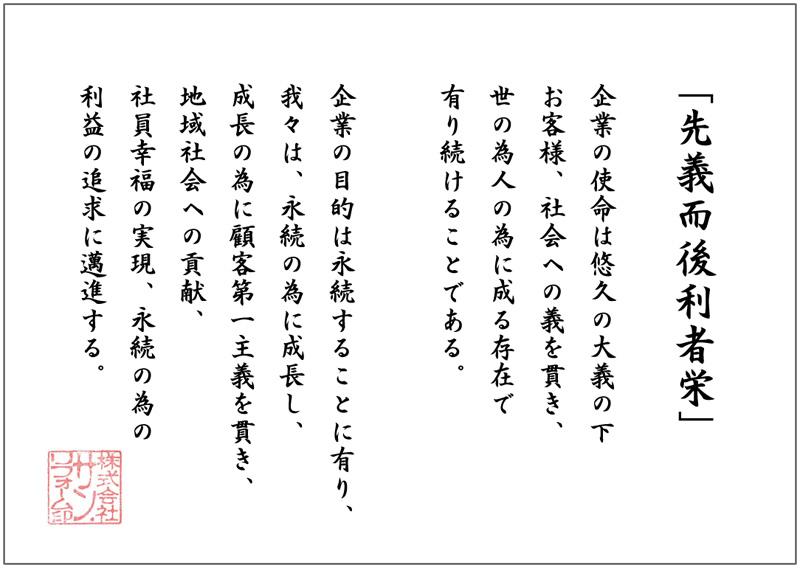 「先義而後利者栄」
企業の使命は悠久の大義の下
お客様、社会への義を貫き、
世の為人の為に成る存在で
有り続けることである。
企業の目的は永続することに有り、
我々は、永続の為に成長し、
成長の為に顧客第一主義を貫き、
地域社会への貢献、
社員幸福の実現、永続の為の
利益の追求に邁進する。
株式会社
サン
リフォーム印